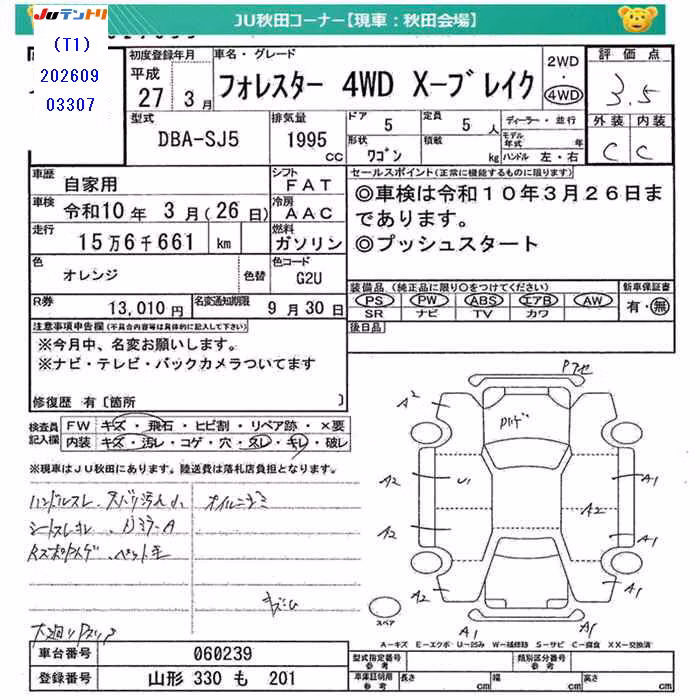 JUテントリ
JU秋田コーナー【現車：秋田会場】
(T1)
202609
03307
初度登録年月
平成
27 3月
車名・グレード
フォレスター 4WD X-ブレイク
2WD
・
4WD
評価点
3.5
外装 内装
C C
型式
DBA-SJ5
排気量
1995
cc
ドア
5
定員
5 人
形状
ワゴン
積載
kg
ディーラー・並行
モデル
年式
年
ハンドル 左・右
車歴
自家用
シフト
FAT
車検
令和10年 3月(26日)
冷房
AAC
走行
15万6千661 km
燃料
ガソリン
色
オレンジ
色替
色コード
G2U
R券
13,010円
名変通知期限
9月30日
セールスポイント(正常に機能するものに限ります)
◎車検は令和10年3月26日ま
であります。
◎プッシュスタート
装備品(純正品に限り○をつけてください)
PS PW ABS エアB AW
SR ナビ TV カワ
新車保証書
有・無
後日品
注意事項申告欄(不具合内容等は具体的に記入して下さい)
※今月中、名変お願いします。
※ナビ・テレビ・バックカメラついてます
修復歴 有〔箇所 〕
検査員
記入欄
FW キズ・飛石・ヒビ割・リペア跡・×要
内装 キズ・汚レ・コゲ・穴・スレ・キレ・破レ
※現車はJU秋田にあります。陸送費は落札店負担となります。
ハンドルスレ
A2
A2
U1
A1
A2
A2
A1
A2
A1
A1
スペア
A-キズ E-エクボ U-凹み W-補修跡 S-サビ C-腐食 XX-交換済
車台番号
060239
登録番号
山形 330 も 201
型式指定番号
参考
類別区分番号
参考
車庫証明用
参考
長さ
cm
幅
cm
高さ
cm